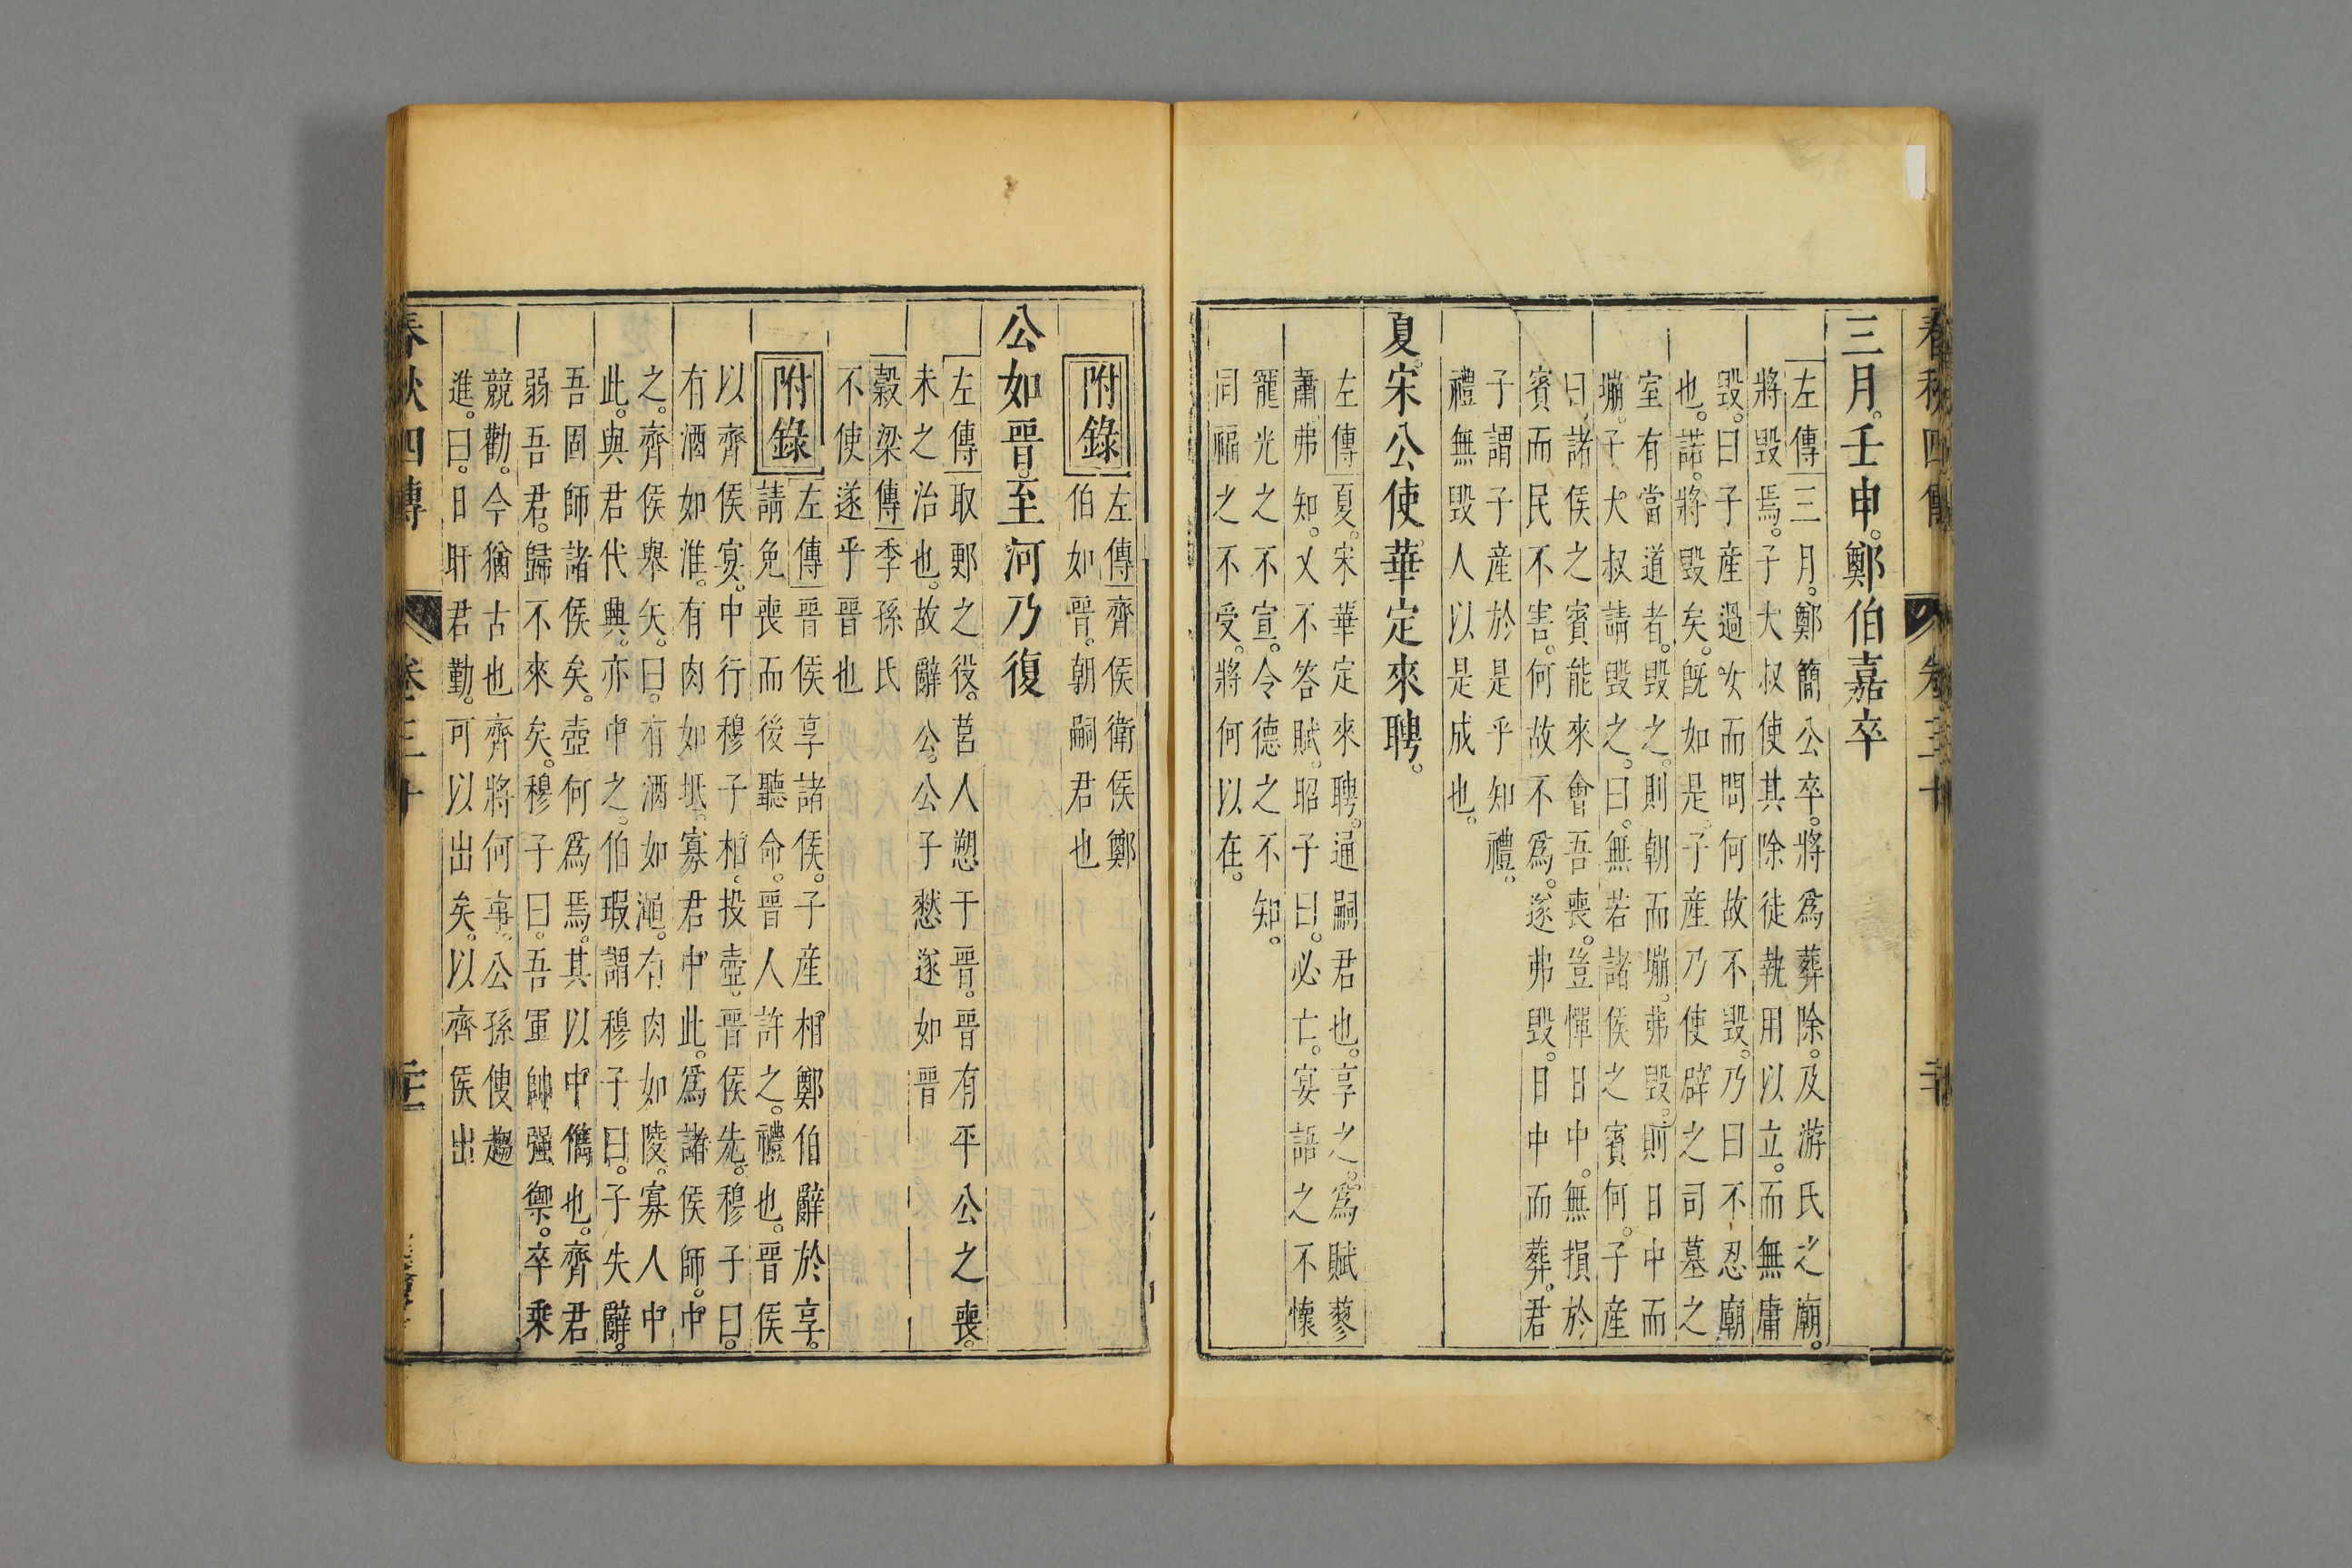 春秋四傳 卷三十
三月。壬申。鄭伯嘉卒
左傳三月。鄭簡公卒。將爲葬除。及游氏之廟。
將毀焉。子大叔使其除徒執用以立。而無庸
毀。曰子產過女而問何故不毀。乃曰不忍廟
也。諾。將毀矣。旣如是。子產乃使辟之。司墓之
室有當道者。毀之。則朝而塴。弗毀。則日中而
塴。子大叔請毀之。曰。無若諸侯之賓何。子產
曰。諸侯之賓能來會吾喪。豈憚日中。無損於
賓。而民不害。何故不爲。遂弗毀。日中而葬。君
子謂子產於是乎知禮。
禮無毀人以是成也。
夏。宋公使華定來聘。
左傳夏。宋華定來聘。通嗣君也。享之。爲賦蓼
蕭。弗知。又不答賦。昭子曰。必亡。宴語之不懷
寵光之不宣。令德之不知。
同福之不受。將何以在。
附錄左傳齊侯衛侯鄭
伯如晉。朝嗣君也
公如晉。至河乃復
左傳取鄆之役。莒人愬于晉。晉有平公之喪。
未之治也。故辭公。公子憖遂如晉
穀梁傳季孫氏
不使遂乎晉也
附錄左傳晉侯享諸侯。子產相鄭伯辭於享。
請免喪而後聽命。晉人許之。禮也。晉侯
以齊侯宴。中行穆子相。投壺。晉侯先。穆子曰。
有酒如淮。有肉如坻。寡君中此。爲諸侯師。中
之。齊侯舉矢。曰。有酒如澠。有肉如陵。寡人中
此。與君代興。亦中之。伯瑕謂穆子曰。子失辭。
吾固師諸侯矣。壺何爲焉。其以中儁也。齊君
弱吾君。歸不來矣。穆子曰。吾軍帥强禦。卒乘
競勸。今猶古也齊將何事。公孫傁趨
進。曰。日旰君勤。可以出矣。以齊侯出
春秋四傳 卷三十